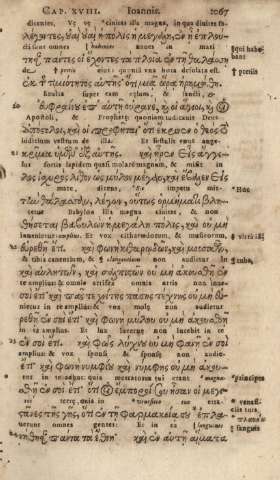 CAP. XVIII. Ioannis. 1067
dicentes, Væ væ ciuitas illa magna, in qua diuites fa-
λέγοντες, οὐαὶ οὐαὶ ἡ πόλις ἡ μεγάλη, ἐν ᾗ ἐπλού-
cti sunt omnes habentes naues in mari
τησαν πάντες οἱ ἔχοντες τὰ πλοῖα ἐν τῇ θαλάσσῃ
de pretiis eius: quoniam vna hora desolata est.
ἐκ τῆς τιμιότητος αὐτῆς ὅτι μιᾷ ὥρᾳ ἠρημώθη.
Exulta super eam cælum, & sancti,
εὐφραίνου ἐπ' αὐτὴν οὐρανέ, καὶ οἱ ἅγιοι, καὶ οἱ
Apostoli, & Prophetæ: quoniam iudicauit Deus
ἀπόστολοι, καὶ οἱ προφῆται ὅτι ἔκρινεν ὁ θεὸς τὸ
iudicium vestrum de illa. Et sustulit vnus ange-
κρίμα ὑμῶν ἐξ αὐτῆς. καὶ ἦρεν εἷς ἄγγε-
lus fortis lapidem quasi molarem magnum, & misit in
λος ἰσχυρὸς λίθον ὡς μύλον μέγαν, καὶ ἔβαλεν εἰς
mare, dicens, impetu mit-
τὴν θάλασσαν, λέγων, οὕτως ὁρμήματι βλη-
tetur Babylon illa magna ciuitas, & non
θήσεται βαβυλὼν ἡ μεγάλη πόλις, καὶ οὐ μὴ
inuenietur amplius. Et vox citharœdorum, & musicorum,
εὑρεθῇ ἔτι. καὶ φωνὴ κιθαρῳδῶν, καὶ μουσικῶν,
& tibia canentium, & non audietur in
καὶ αὐλητῶν, καὶ σαλπιστῶν οὐ μὴ ἀκουσθῇ ἐν
te amplius: & omnis artifex omnis artis non inue-
σοὶ ἔτι καὶ πᾶς τεχνίτης πάσης τέχνης οὐ μὴ εὑ-
nietur in te amplius: & vox molæ non audietur
ρεθῇ ἐν σοὶ ἔτι καὶ φωνὴ μύλου οὐ μὴ ἀκουσθῇ
in te amplius. Et lux lucernæ non lucebit in te
ἐν σοὶ ἔτι. καὶ φῶς λύχνου οὐ μὴ φανῇ ἐν σοὶ
amplius: & vox sponsi & sponsæ non audie-
ἔτι καὶ φωνὴ νυμφίου καὶ νύμφης οὐ μὴ ἀκου-
σθῇ ἐν σοὶ ἔτι ὅτι οἱ ἔμποροί σου ἦσαν οἱ μεγι-
στᾶνες τῆς γῆς, ὅτι ἐν τῇ φαρμακείᾳ σου ἐπλα-
uerunt omnes gentes: Et in ea sanguis
νήθησαν πάντα τὰ ἔθνη καὶ ἐν αὐτῇ αἵματα
pretiis
principes